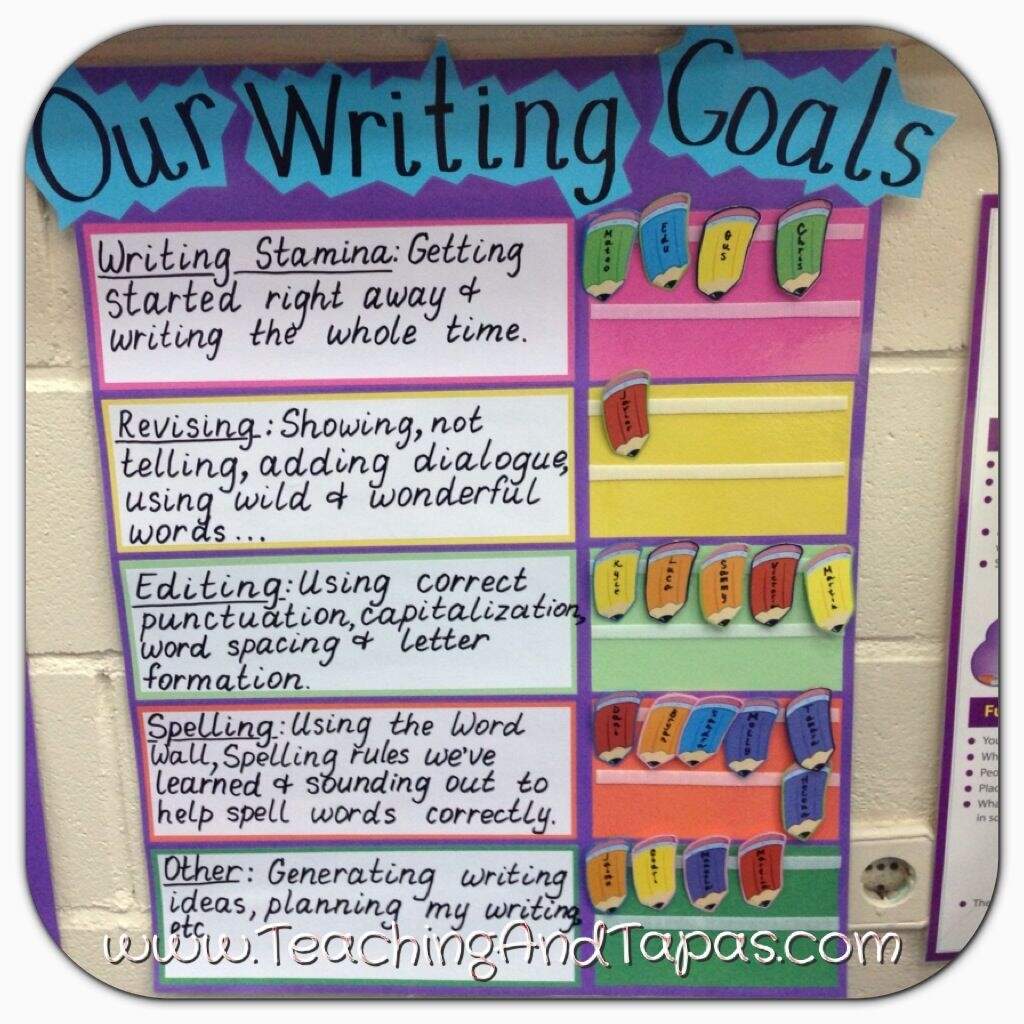 Our Writing Goals
Writing Stamina: Getting
started right away &
writing the whole time.
Mateo
Edu
Gus
Chris
Revising: Showing, not
telling, adding dialogue,
using wild & wonderful
words...
Javier
Editing: Using correct
punctuation, capitalization,
word spacing & letter
formation.
Kyle
Luca
Sammy
Victoria
Martín
Spelling: Using the Word
Wall, Spelling rules we've
learned & sounding out to
help spell words correctly.
Molly
Other: Generating writing
ideas, planning my writing,
etc
Jaime
www.TeachingAndTapas.com
Fu
You
Who
Peo
Plac
Wha
in sc
The